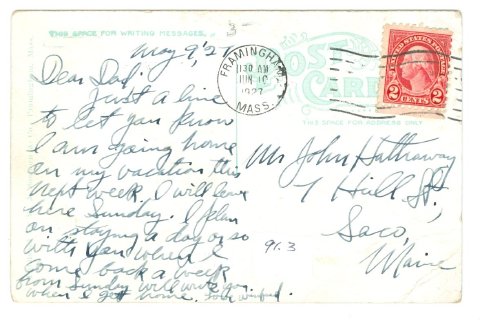 THIS SPACE FOR WRITING MESSAGES.
May 9 '27
Dear Dad:
Just a line
to let you know
I am going home
on my vacation this
next week. I will leave
here Sunday. I plan
on staying a day or so
with you when I
come back a week
from Sunday will write you
when I get home. Love Winifred.
FRAMINGHAM
11 30 AM
JUN 10
1927
MASS.
POST
CARD
UNITED STATES POSTAGE
2 CENTS 2
THIS SPACE FOR ADDRESS ONLY.
Mr John Hathaway
7 Hill St.
Saco,
Maine
91.3